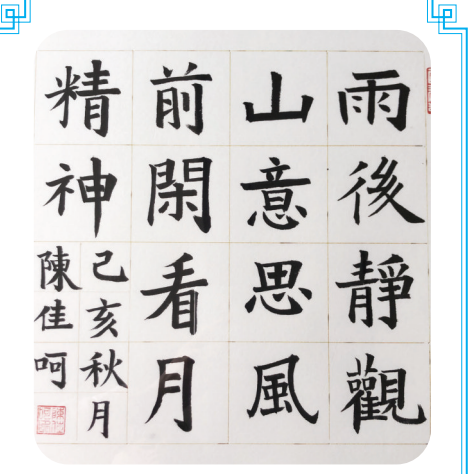 雨後靜觀
山意思風
前閑看月
精神
己亥秋月
陳佳呵